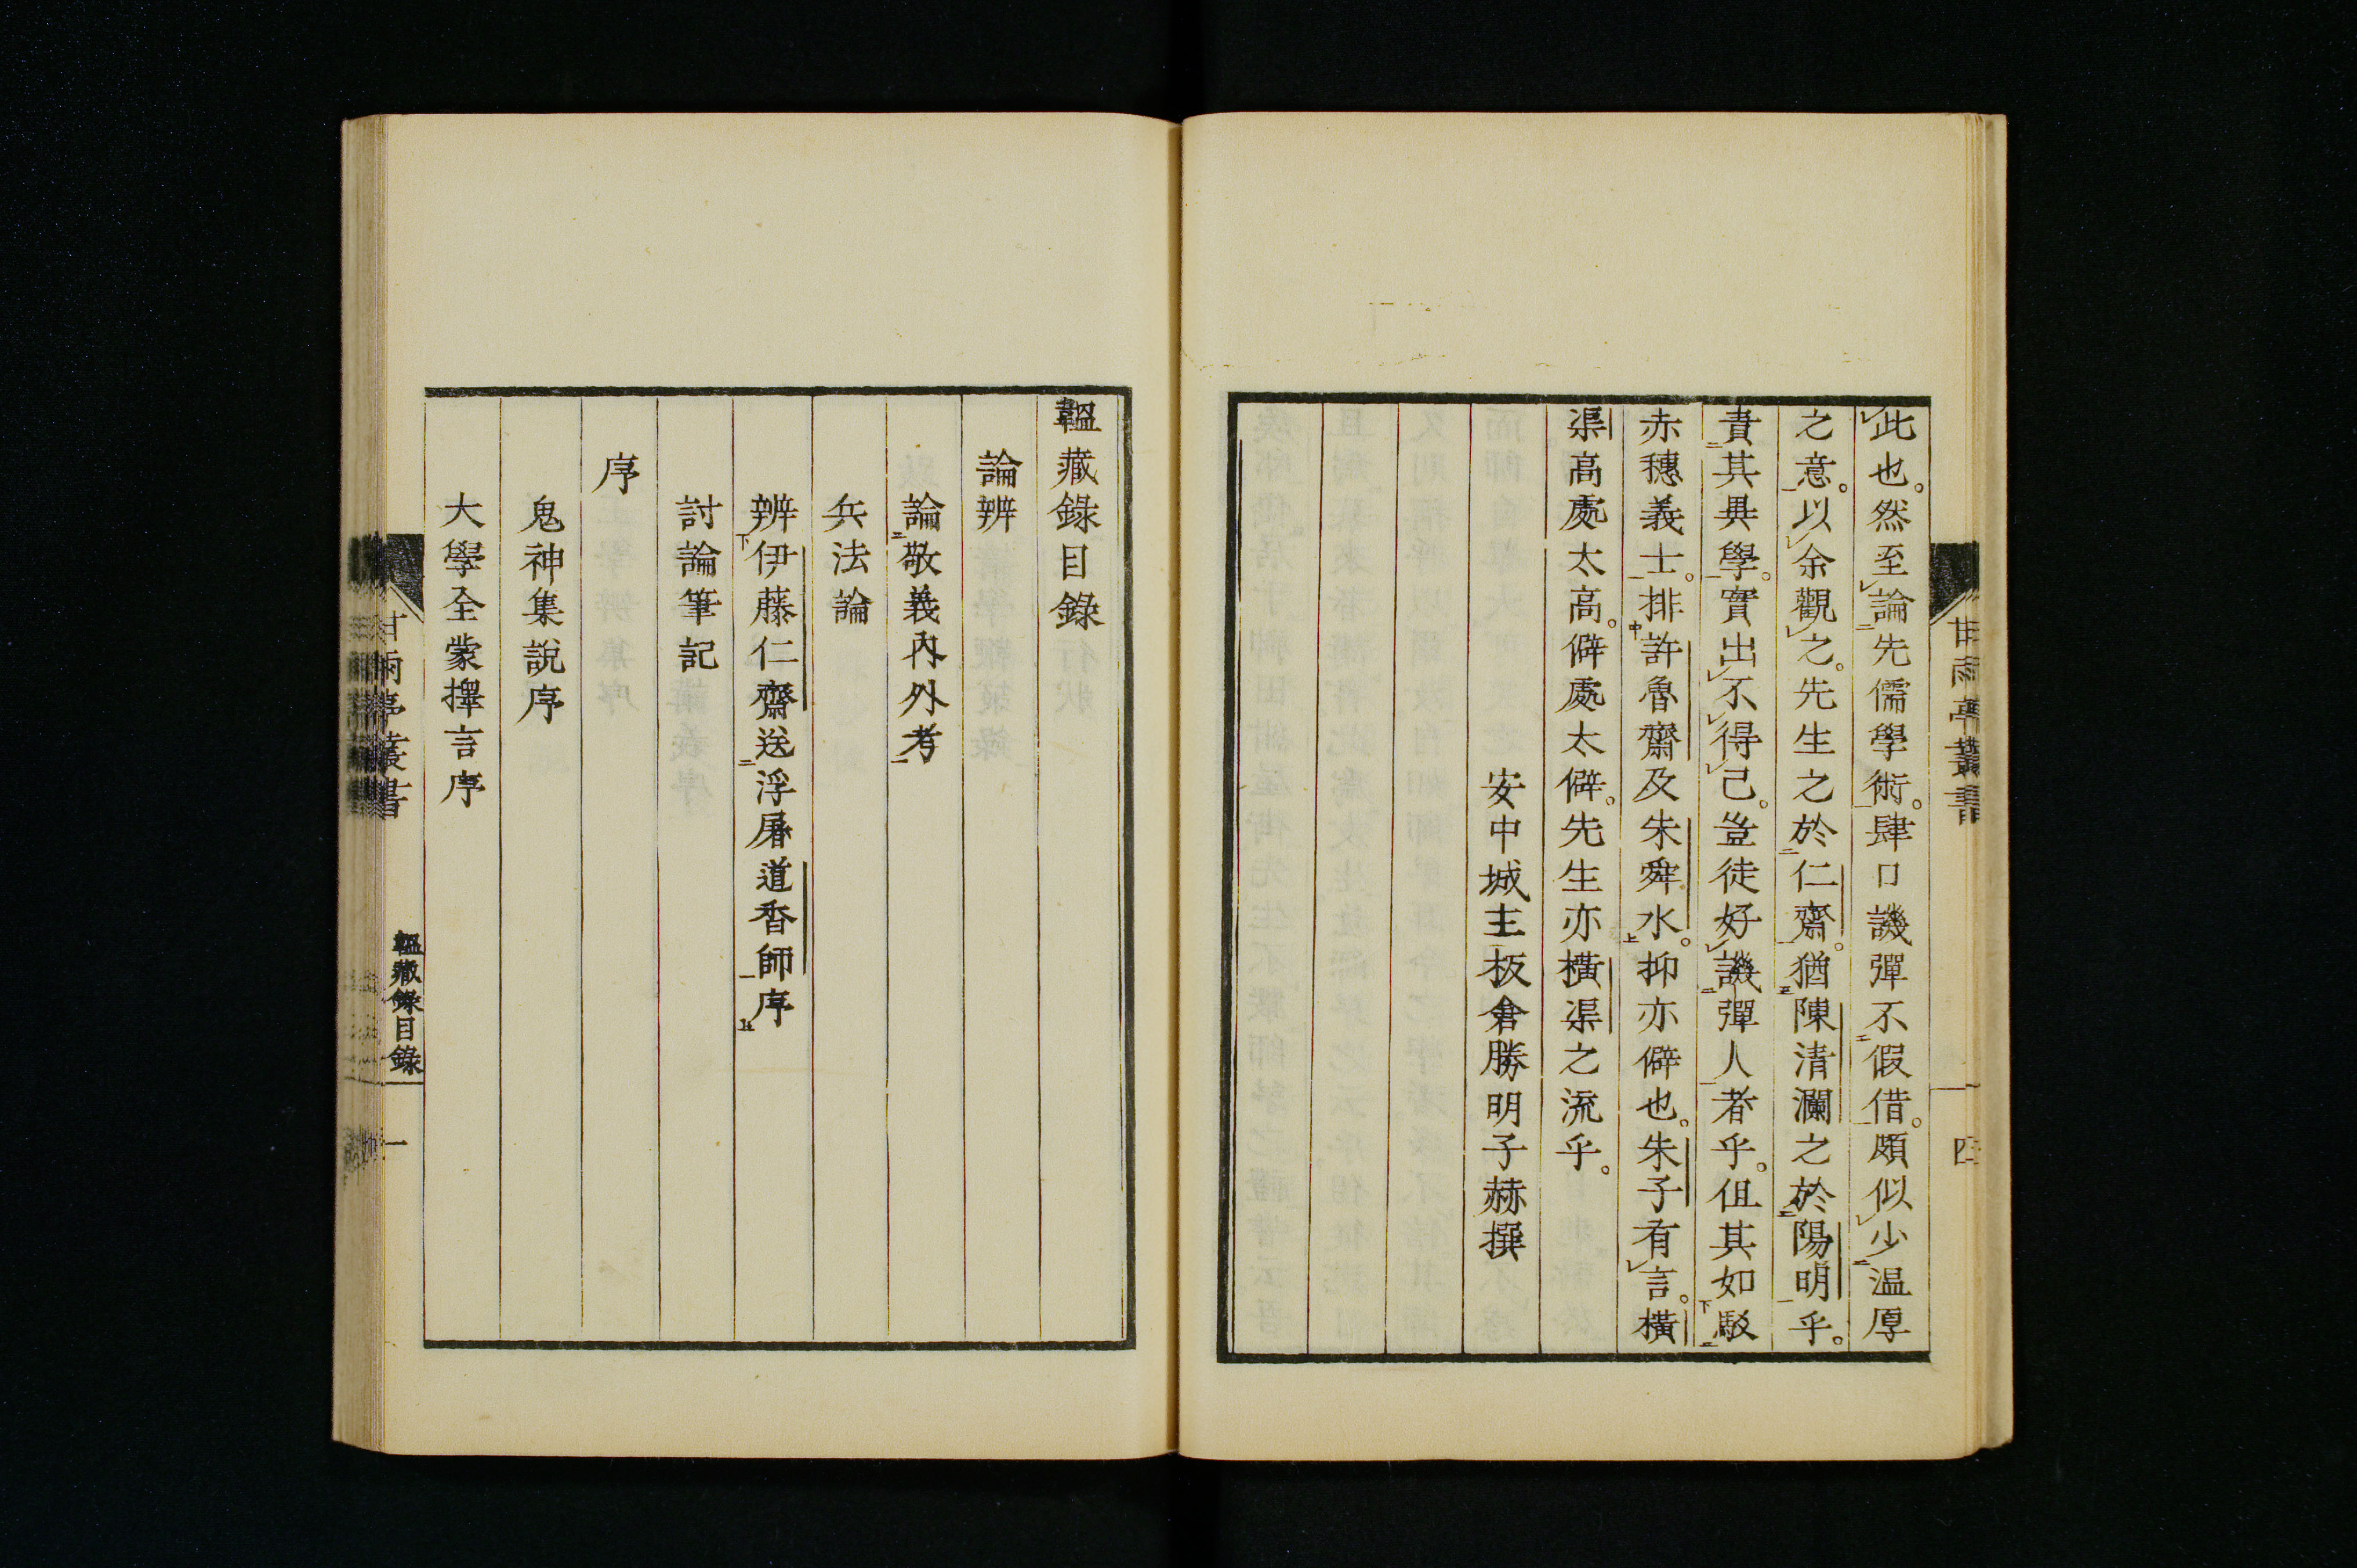 此也。然至論先儒學術。肆口譏彈不假借。頗似少温厚
之意。以余觀之。先生之於仁齋。猶陳清瀾之於陽明乎。
責其異學。實出不得已。豈徒好譏彈人者乎。但其如駁
赤穗義士。排許魯齋及朱舜水。抑亦僻也。朱子有言。橫
渠高處太高。僻處太僻。先生亦橫渠之流乎。
安中城主板倉勝明子赫撰
甘雨亭叢書
四
韞藏錄目錄
論辨
論敬義內外考
兵法論
辨伊藤仁齋送浮屠道香師序
討論筆記
序
鬼神集說序
大學全蒙擇言序
甘雨亭叢書
韞藏錄目錄
一